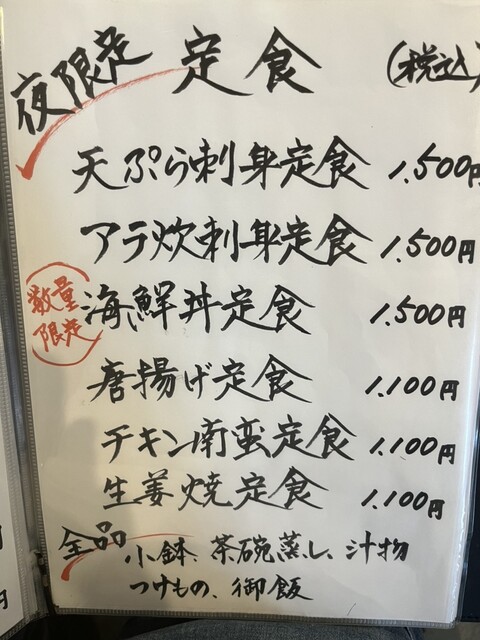 夜限定 定食 (税込)
天ぷら刺身定食 1.500円
アラ炊刺身定食 1.500円
数量限定 海鮮丼定食 1.500円
唐揚げ定食 1.100円
チキン南蛮定食 1.100円
生姜焼定食 1.100円
全品 小鉢、茶碗蒸し、汁物
つけもの、御飯
円